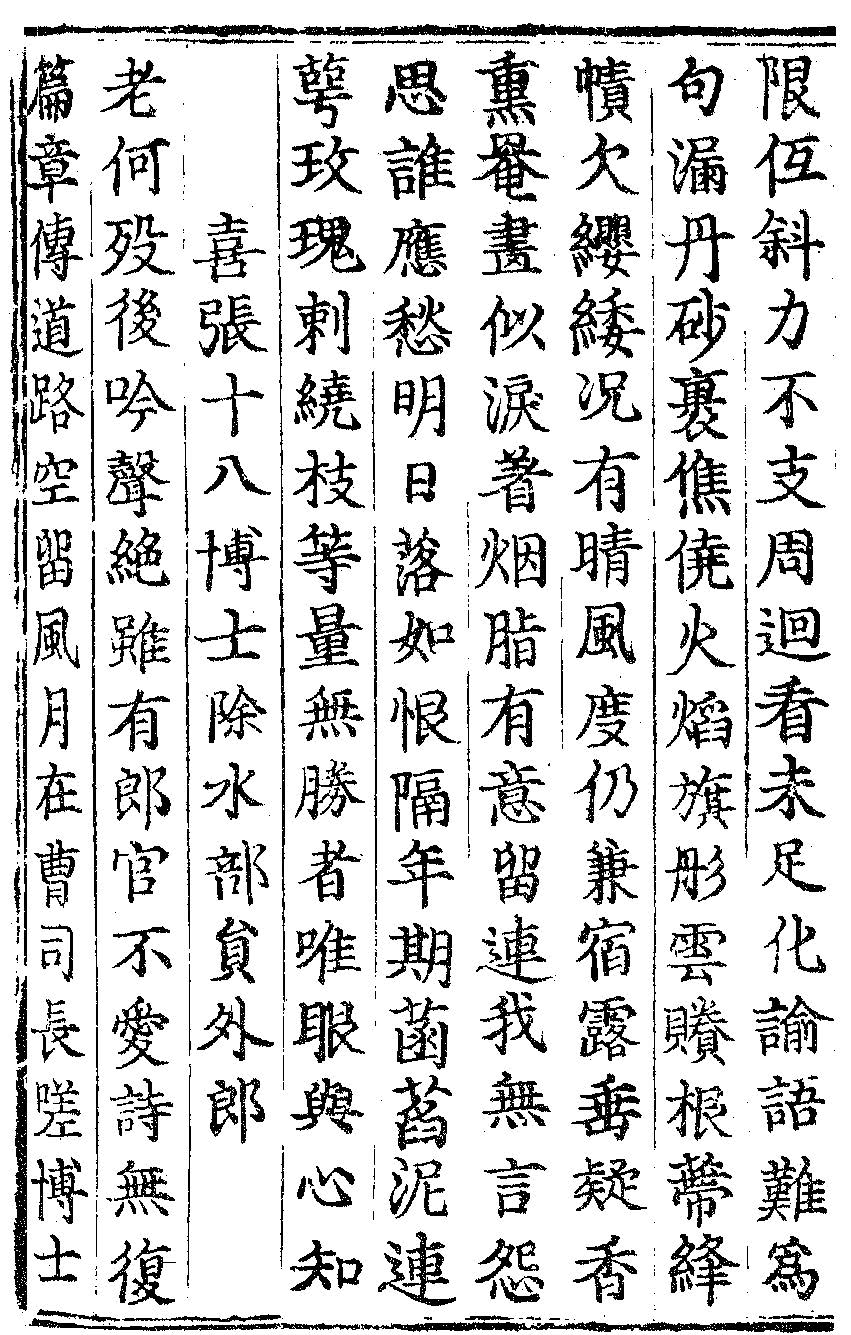 限低斜力不支周迴看未足化諭語難為
句漏丹砂裹僬僥火焰旗彤雲賸根蔕絳
幘欠纓緌况有晴風度仍兼宿露垂疑香
熏罨畫似淚著烟脂有意留連我無言怨
思誰應愁明日落如恨隔年期菡萏泥連
萼玫瑰刺繞枝等量無勝者唯眼與心知
喜張十八博士除水部貟外郎
老何歿後吟聲絶雖有郎官不愛詩無復
篇章傳道路空留風月在曹司長嗟博士